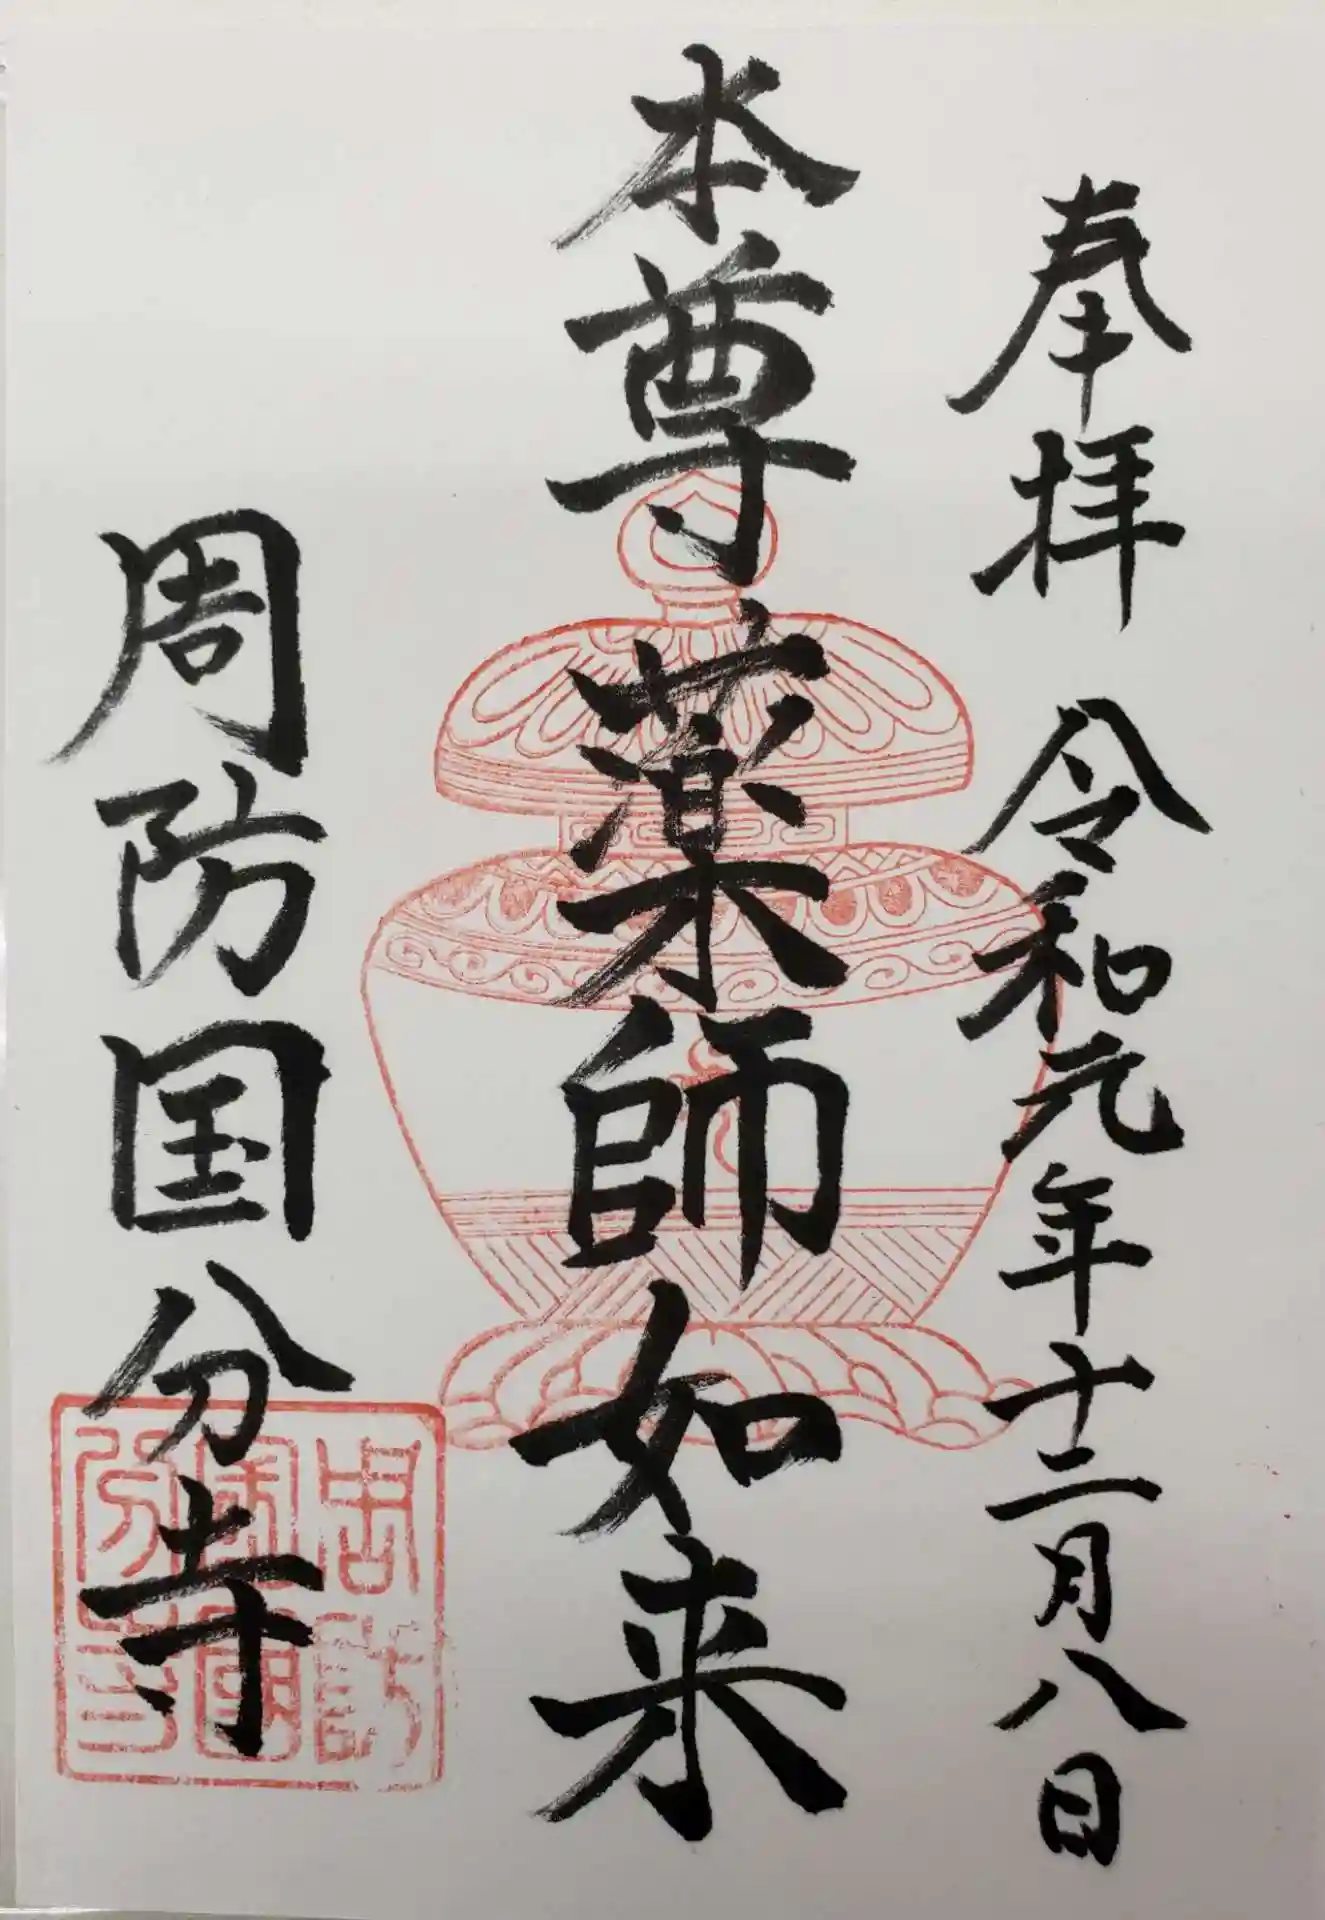 奉拝 令和元年十二月八日
本尊薬師如来
周防国分寺